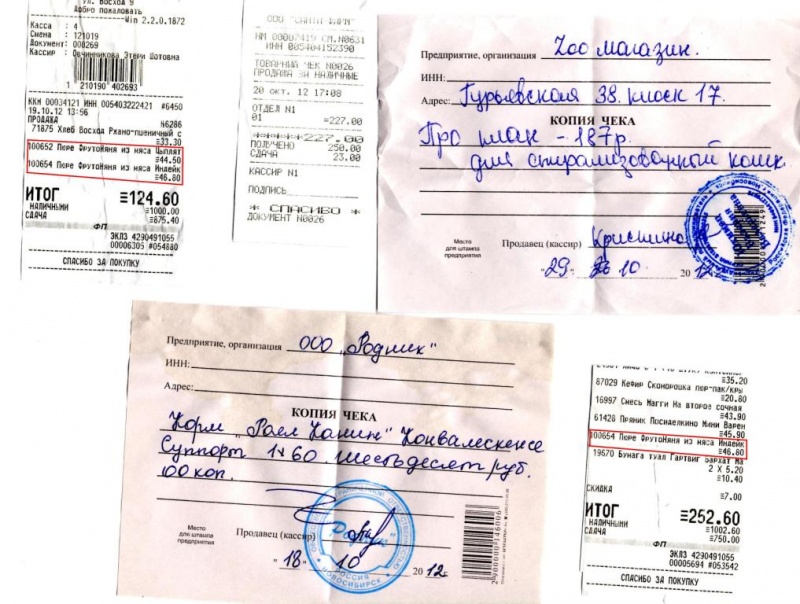 ул. Восход 9
Добро пожаловать
Win 2.2.0.1872
Касса : 4
Смена : 121019
Документ: 008269
Кассир : Овчинникова Этери Шотовна
1 210190 402693
ККН 00034121 ИНН 005403222421 #6450
19.10.12 13:56
ПРОДАЖА №6286
71875 Хлеб Восход Ржано-пшеничный с
≡33.30
100652 Пюре ФрутоНяня из мяса Цыплят
≡44.50
100654 Пюре ФрутоНяня из мяса Индейк
≡46.80
ИТОГ ≡124.60
НАЛИЧНЫМИ ≡1000.00
СДАЧА ≡875.40
ФП
ЭКЛЗ 4290491055
00006305 #054880
СПАСИБО ЗА ПОКУПКУ
НМ 00007419 СМ.N0631
ИНН 005404152390
ТОВАРНЫЙ ЧЕК N0026
ПРОДАЖА ЗА НАЛИЧНЫЕ
20 окт. 12 17:08
ОТДЕЛ N1
01 =227.00
*****=227.00
ПОЛУЧЕНО 250.00
СДАЧА 23.00
КАССИР N1
ПОДПИСЬ
* СПАСИБО *
ДОКУМЕНТ N0026
Предприятие, организация Zoo магазин.
ИНН:
Адрес: Гурьевская 38. киоск 17.
КОПИЯ ЧЕКА
Про план - 187р.
для стирализованный кошк.
Место для штампа предприятия
Продавец (кассир)
"29" 10. 2012.
Предприятие, организация ООО "Родник"
ИНН:
Адрес:
КОПИЯ ЧЕКА
Корм "Роял Канин" Конвалескенсе
Суппорт 1x60. Шестьдесят руб.
00 коп.
Место для штампа предприятия
Продавец (кассир)
"18" 10 2012г.
РОССИЯ
НОВОСИБИРСК
2 900000 146006
≡35.20
87029 Кефир Скоморошка пюр-пак/кры
≡20.80
16997 Смесь Магги На второе сочная
≡43.90
61428 Пряник Посиделкино Мини Варен
≡45.90
100654 Пюре ФрутоНяня из мяса Индейк
≡46.80
19670 Бумага туал Гартвиг бархат Ма
2 X 5.20
≡10.40
СКИДКА
≡7.00
ИТОГ ≡252.60
НАЛИЧНЫМИ ≡1002.60
СДАЧА ≡750.00
ФП
ЭКЛЗ 4290491055
00005694 #053542
СПАСИБО ЗА ПОКУПКУ